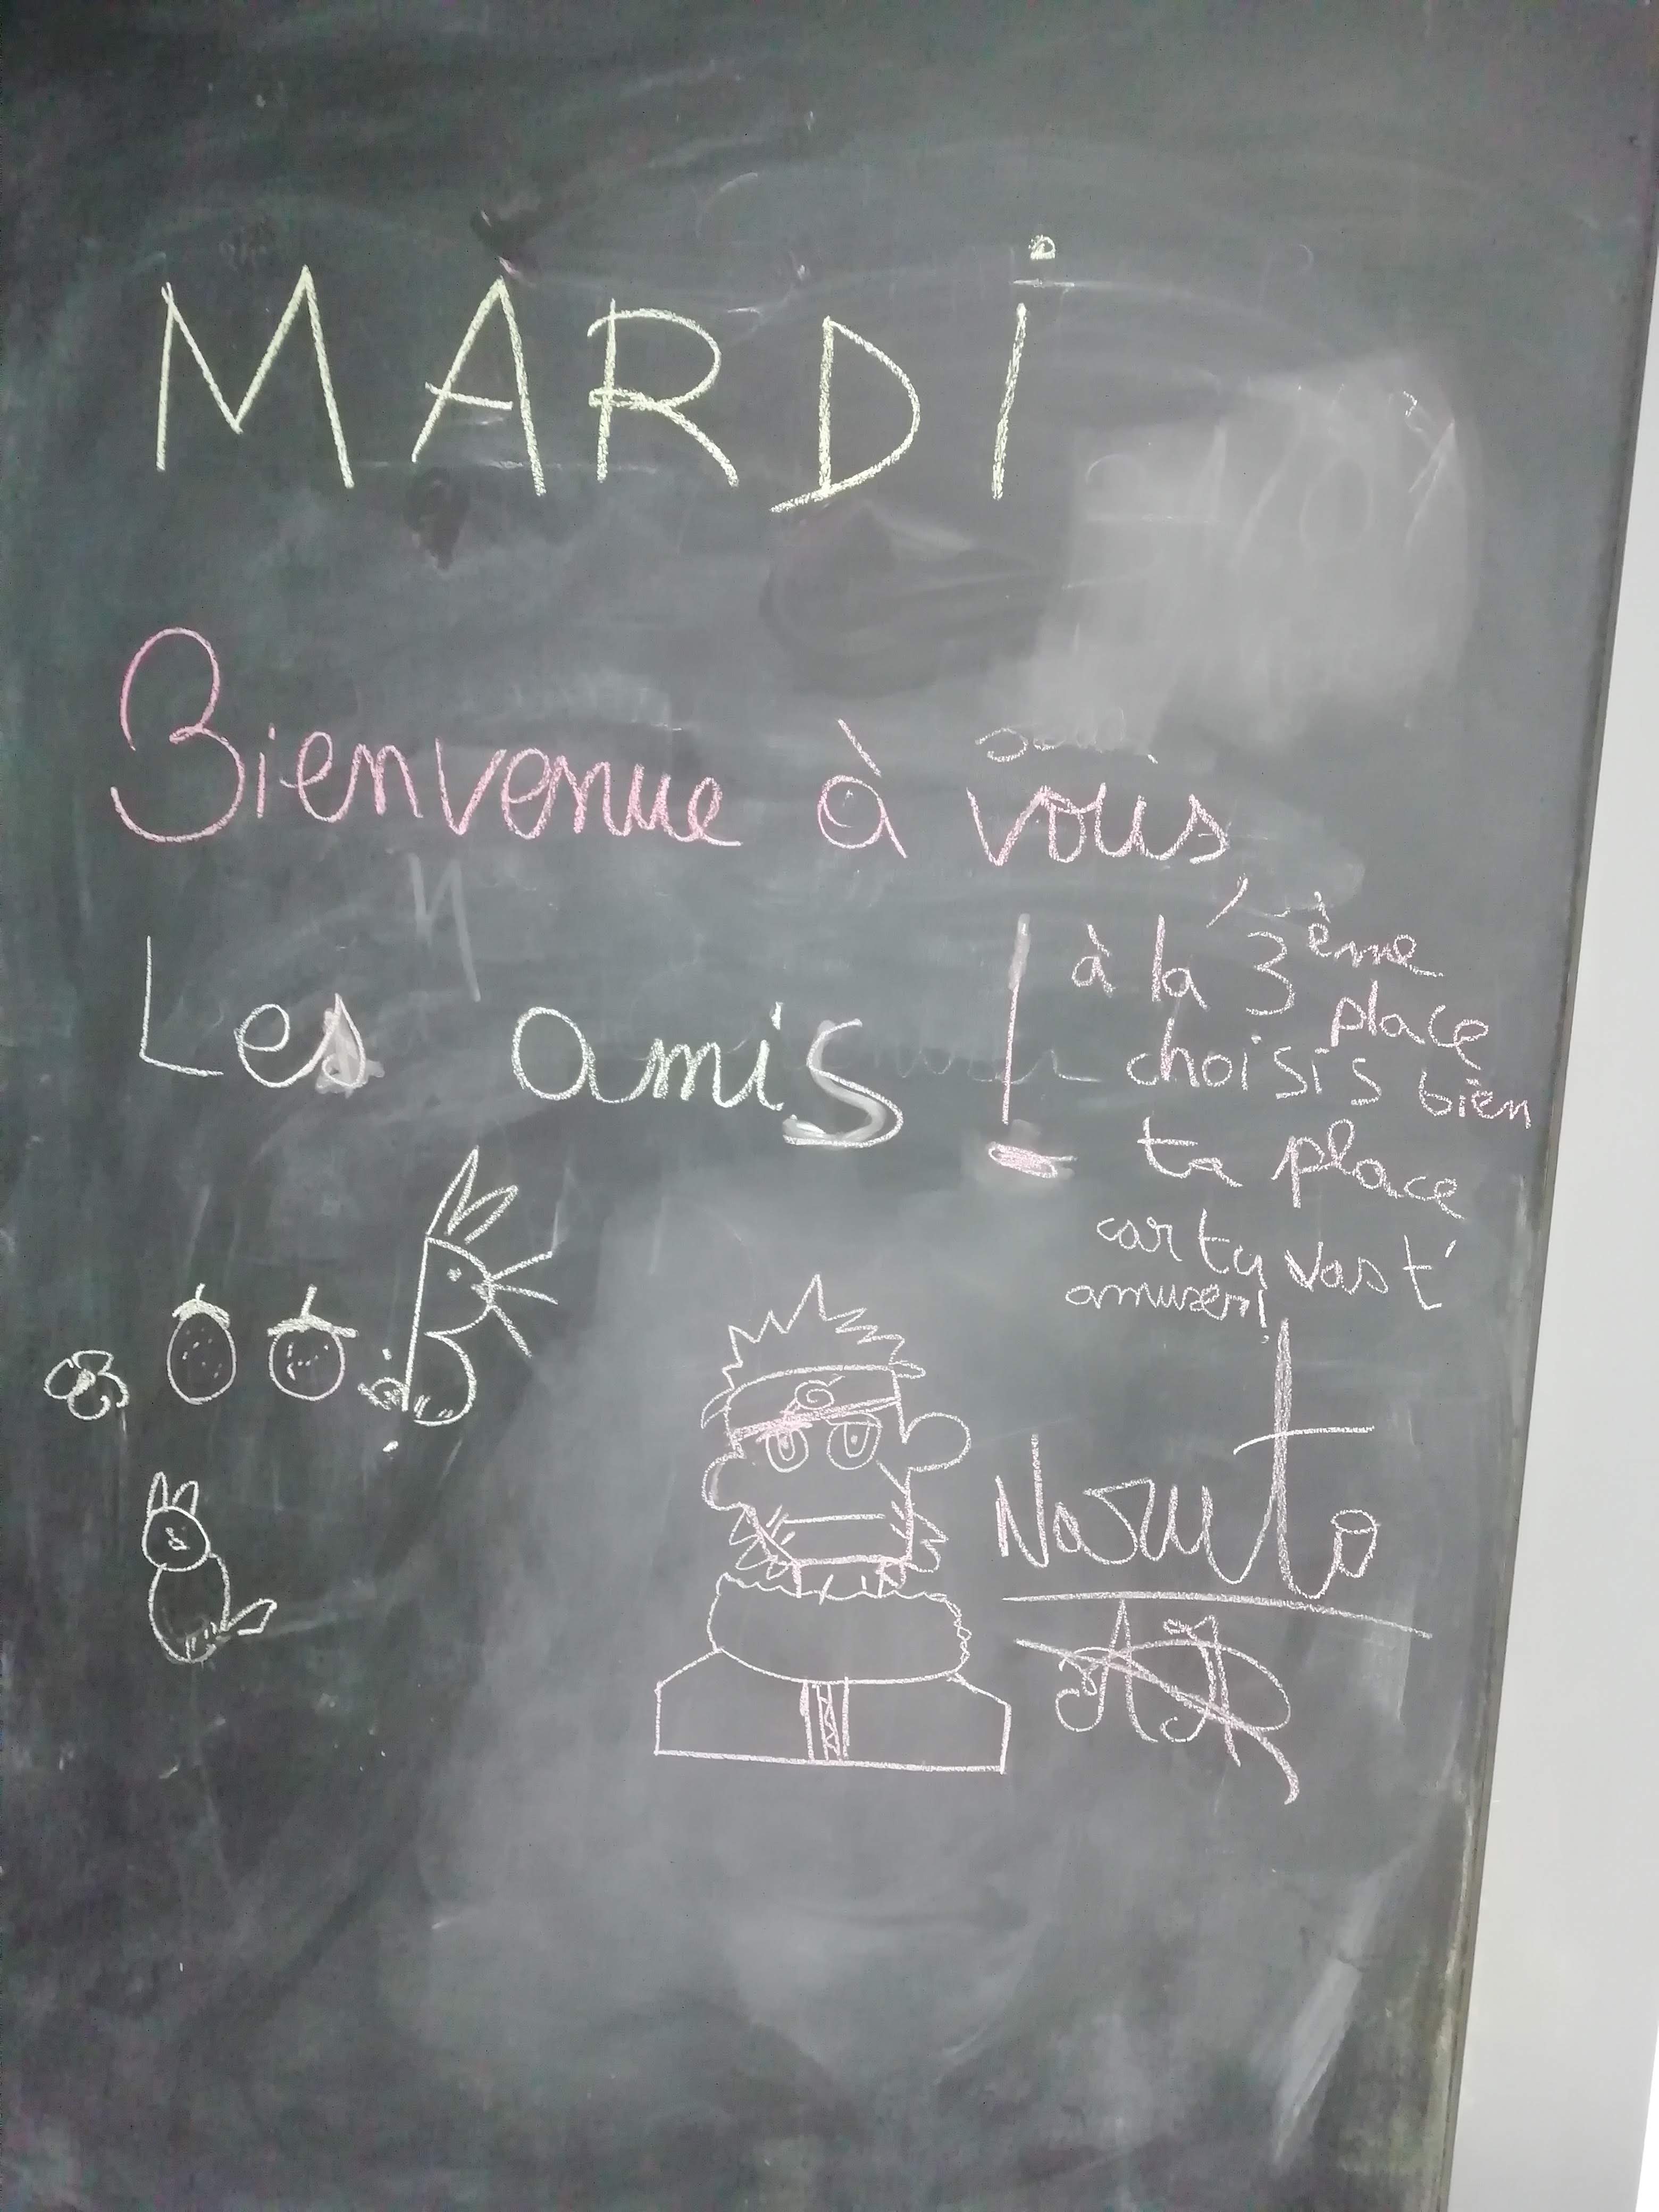 MARDi
Bienvenue à vous,
Les amis !
à la 3ème
place
choisis bien
ta place
car ty vas t'
amuser!
Naruto
AR